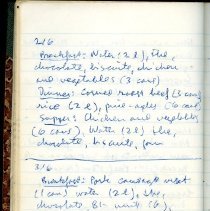 2/6
Breakfast: Water (2 l), the,
chocolate, biscuits, chicken
and vegetables (3 cans)
Dinner: Corned roast beef (3 cans)
rice (2 l), pine-apples (6 cans)
Supper: Chicken and vegetables
(6 cans), Water (2 l) the,
chocolate, biscuits,
3/6
Breakfast: Pork
(1 can) water (2 l), the,
chocolate,